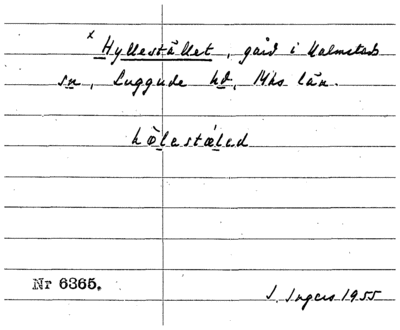 x Hyllestället, gård i Halmstads
sn, Luggude hd, Mhs län.
hö̀lestæ̀led
Nr 6365.
I. Ingers 1955